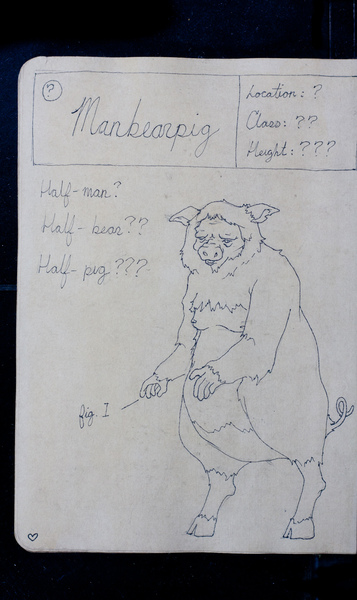 ?
Manbearpig
Location: ?
Class: ??
Height: ???
Half-man?
Half-bear??
Half-pig???
fig. I